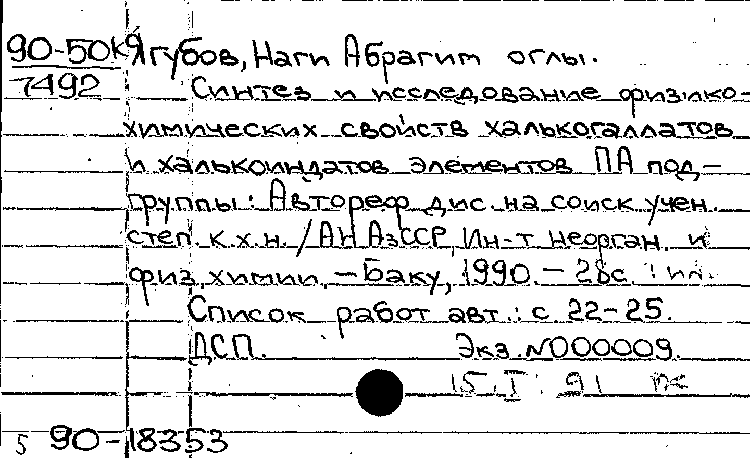 90-50к Ягубов, Наги Абрагим оглы.
7492 Синтез и исследование физико-
химических свойств халькогаллатов
и халькоиндатов элементов ПА под-
группы: Автореф. дис. на соиск. учен.
степ. к.х.н. / АН АзССР, Ин-т неорган. и
физ. химии. – Баку, 1990. – 28с. : ил.
Список работ авт.: с. 22-25.
ДСП. Экз. N000009.
15. I. 91
5 90-18353